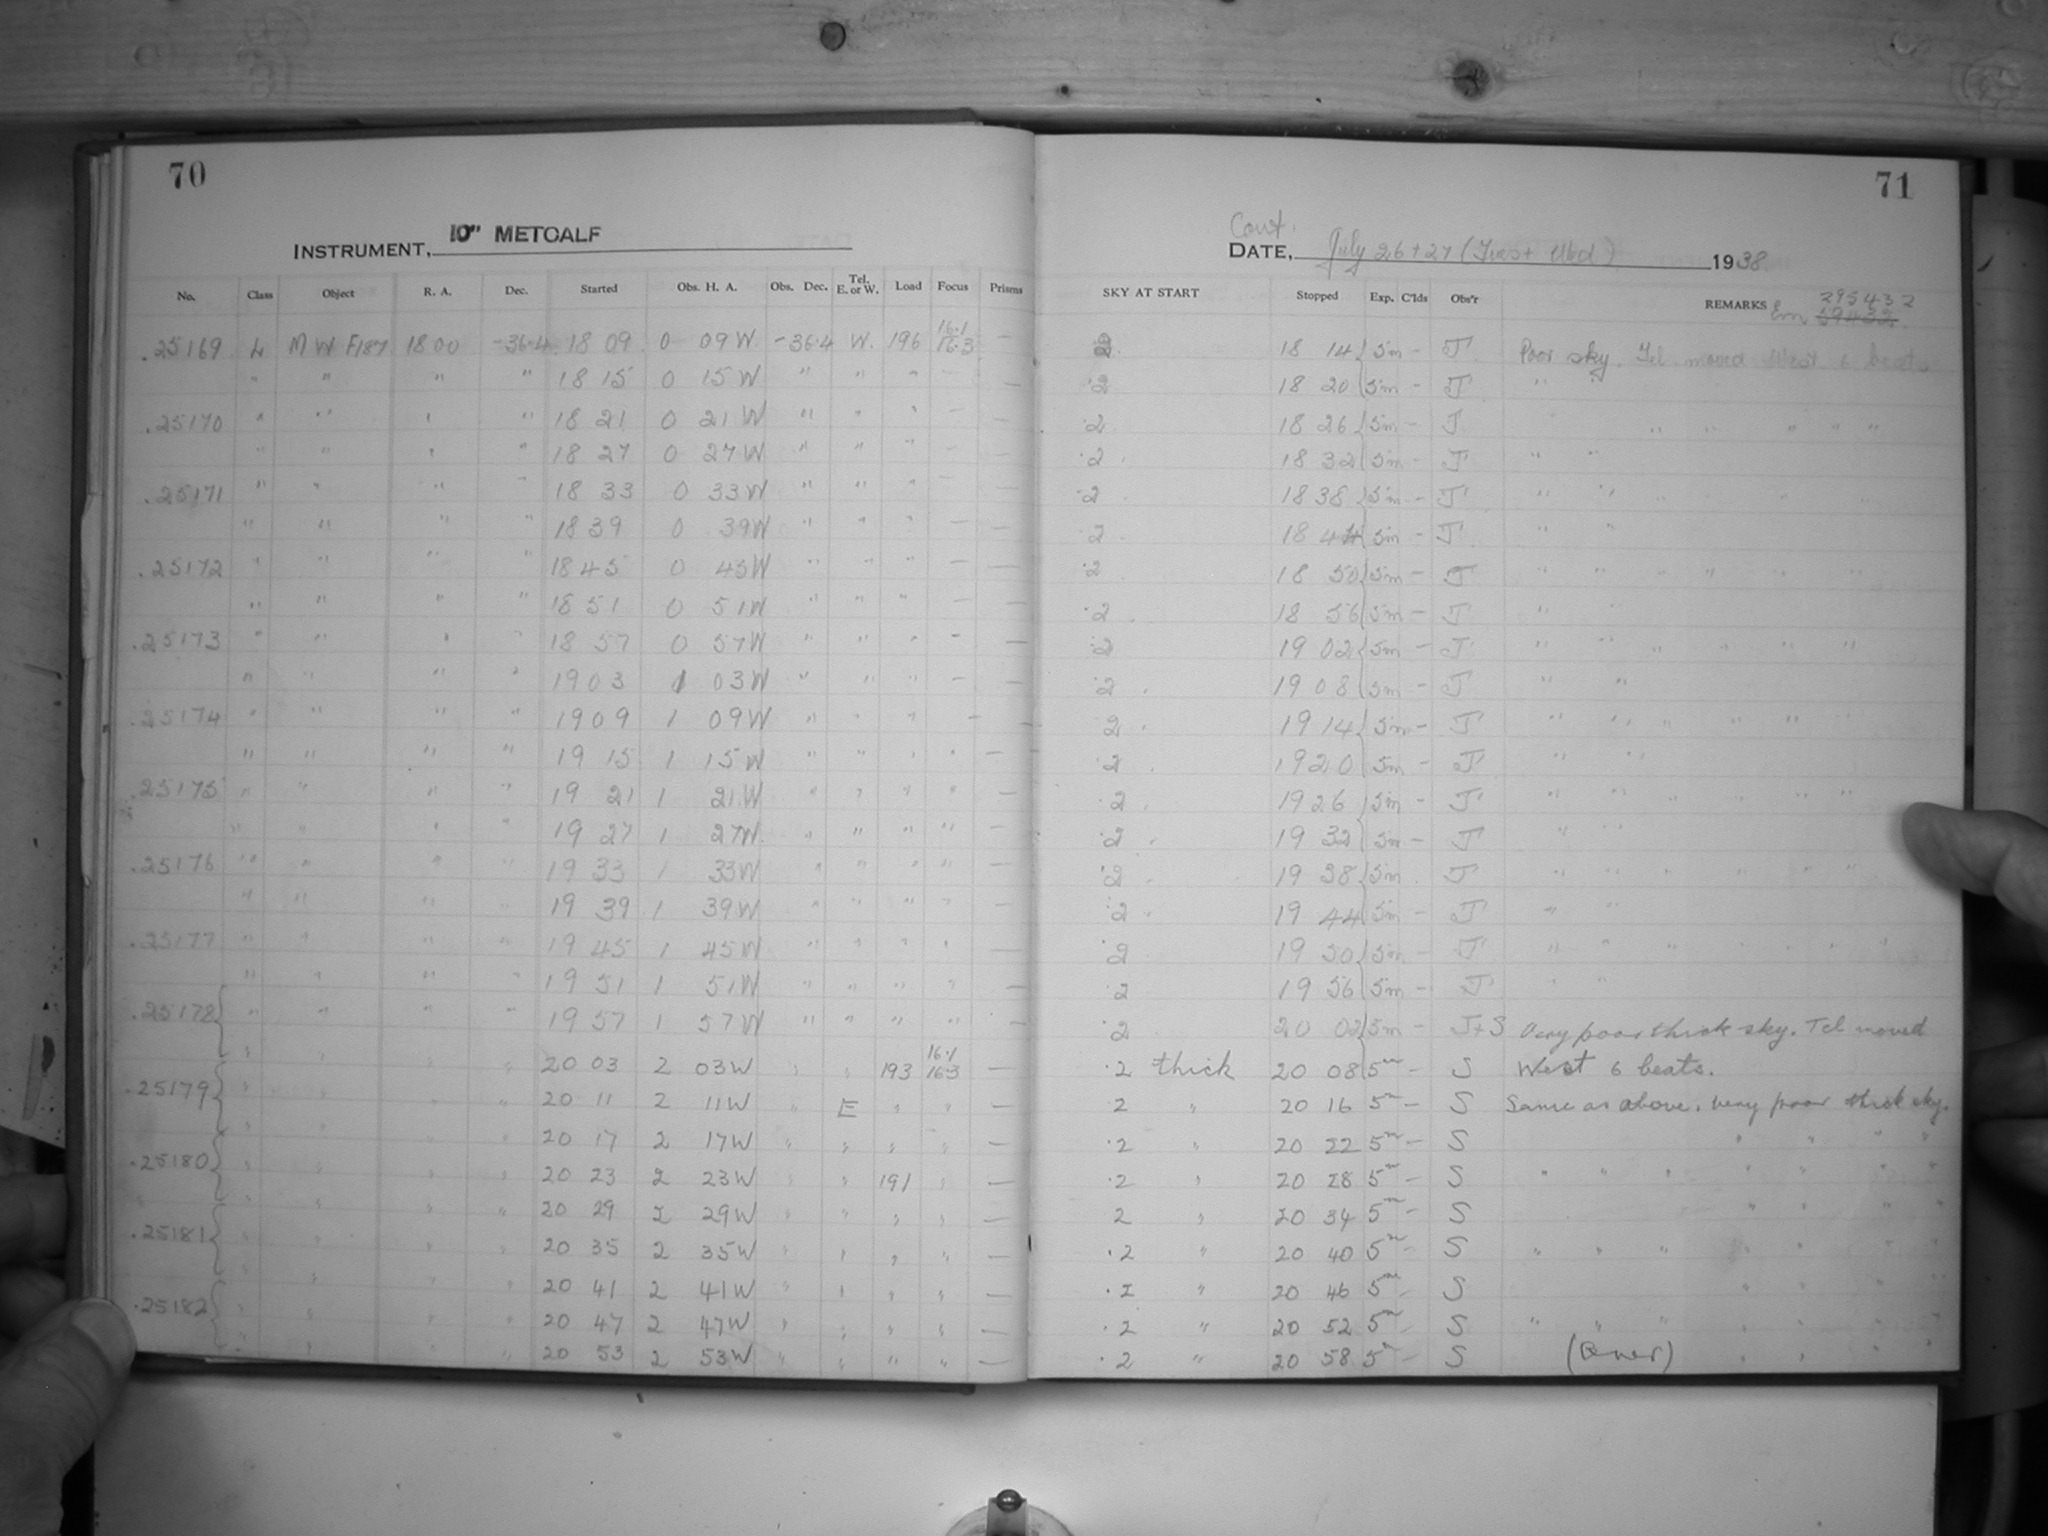 70
INSTRUMENT, 10" METCALF
No. Class Object R. A. Dec. Started Obs. H. A. Obs. Dec. Tel. E. or W. Load Focus Prisms
.25169 L M W F187 18 00 -36.4 18 09 0 09W -36.4 W. 196 16.1 16.3 —
" " " " 18 15 0 15W " " " — —
.25170 " " " " 18 21 0 21W " " " — —
" " " " 18 27 0 27W " " " — —
.25171 " " " " 18 33 0 33W " " " — —
" " " " 18 39 0 39W " " " — —
.25172 " " " " 18 45 0 45W " " " — —
" " " " 18 51 0 51W " " " — —
.25173 " " " " 18 57 0 57W " " " — —
" " " " 19 03 1 03W " " " — —
.25174 " " " " 19 09 1 09W " " " — —
" " " " 19 15 1 15W " " " " —
.25175 " " " " 19 21 1 21W " " " " —
" " " " 19 27 1 27W " " " " —
.25176 " " " " 19 33 1 33W " " " " —
" " " " 19 39 1 39W " " " " —
.25177 " " " " 19 45 1 45W " " " " —
" " " " 19 51 1 51W " " " " —
.25178 " " " " 19 57 1 57W " " " " —
" " " " 20 03 2 03W " " 193 16.1 16.3 —
.25179 " " " " 20 11 2 11W " E " " —
" " " " 20 17 2 17W " " " " —
.25180 " " " " 20 23 2 23W " " 191 " —
" " " " 20 29 2 29W " " " " —
.25181 " " " " 20 35 2 35W " " " " —
" " " " 20 41 2 41W " " " " —
.25182 " " " " 20 47 2 47W " " " " —
" " " " 20 53 2 53W " " " " —
71
Cont.
DATE, July 26+27 (Tues+Wed) 1938
SKY AT START Stopped Exp. C'lds Obs'r REMARKS Em 295432
59432
2 18 14 5m — J Poor sky. Tel. moved West 6 beats
.2 18 20 5m — J " "
.2 18 26 5m — J " " " " "
.2 18 32 5m — J " "
.2 18 38 5m — J " " " " " "
.2 18 44 5m — J " "
.2 18 50 5m — J " " " " " "
.2 18 56 5m — J " "
.2 19 02 5m — J " " " " " "
.2 19 08 5m — J " "
.2 19 14 5m — J " " " " "
.2 19 20 5m — J " "
.2 19 26 5m — J " " " " " "
.2 19 32 5m — J " "
.2 19 38 5m J " " " " " "
.2 19 44 5m — J " "
.2 19 50 5m — J " " " " " "
.2 19 56 5m — J " "
.2 20 02 5m — J+S Very poor thick sky. Tel moved
.2 thick 20 08 5m — S West 6 beats.
2 " 20 16 5m — S Same as above. very poor thick sky.
.2 " 20 22 5m — S " " " "
.2 " 20 28 5m — S " " " " " "
2 " 20 34 5m — S " " " "
.2 " 20 40 5m — S " " " " " "
.2 " 20 46 5m — S " " "
.2 " 20 52 5m — S " " " " " "
.2 " 20 58 5m — S (Over) " " "